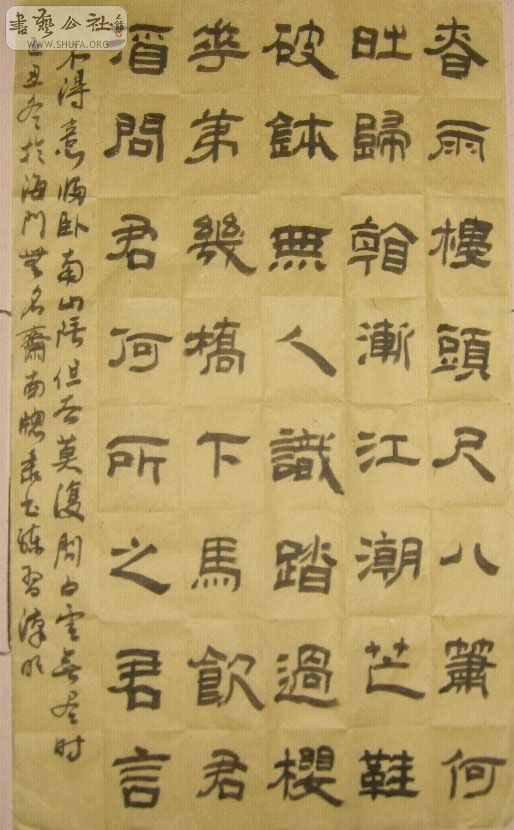 春雨樓頭尺八簫何
時歸看浙江潮芒鞋
破鉢無人識踏過櫻
華第幾橋下馬飲君
酒問君何所之君言
不得意歸臥南山陲但去莫復問白雲無盡時
丑冬於海門無名齋南窗隸書練習
書藝公社
WWW.SHUFA.ORG